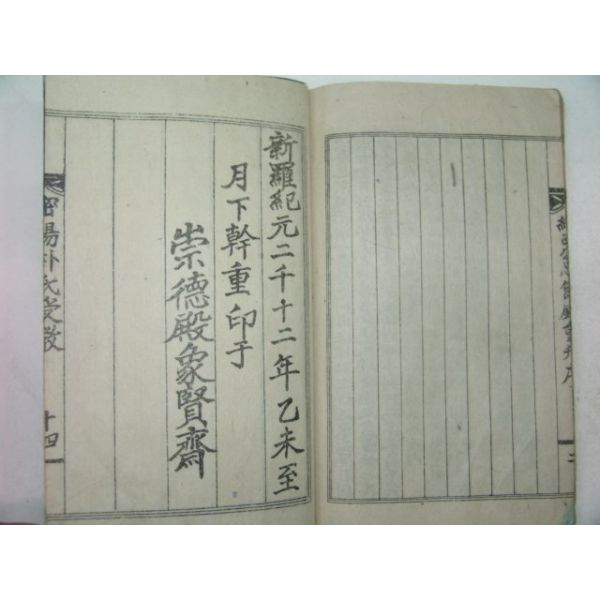 新羅紀元二千十二年乙未至
月下幹重印于
崇德殿象賢齋
密陽朴氏受教
十四
二